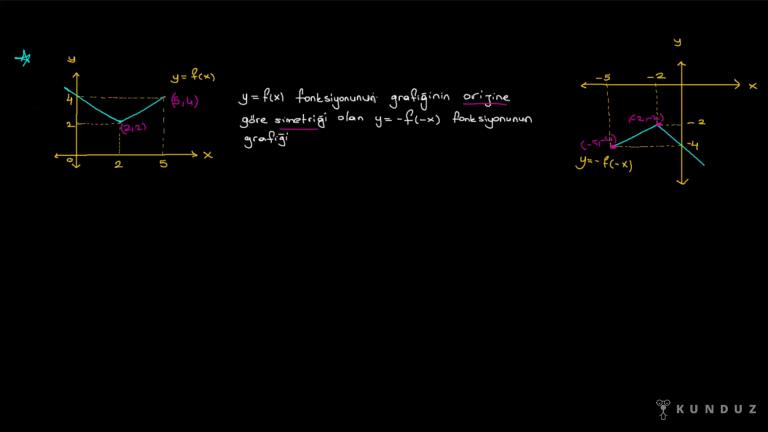 y
y = f(x)
4
(5,4)
2
(2,2)
0
2
5
x
y = f(x) fonksiyonunun grafiğinin orijine
göre simetriği olan y = -f(-x) fonksiyonunun
grafiği
y
-5
-2
x
(-2,-2)
-2
(-5,-4)
-4
y = -f(-x)
KUNDUZ